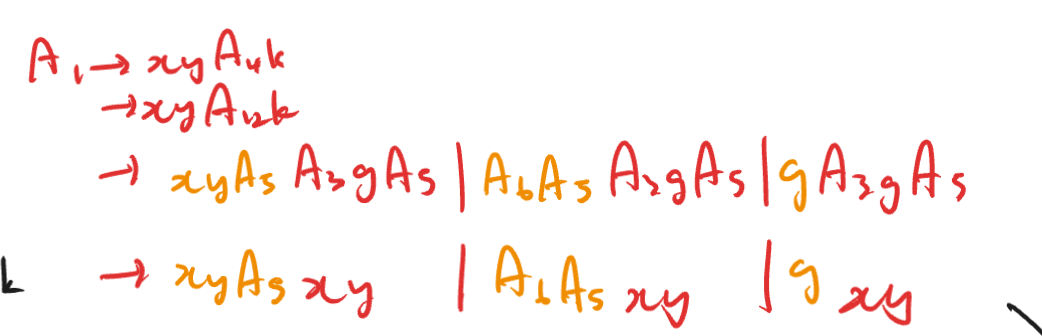 A₁ → xyA₄k
→ xyA₁₂k
→ xyA₅A₃gA₅ | A₆A₅A₃gA₅ | gA₃gA₅
→ xyA₅xy | A₆A₅xy | gxy